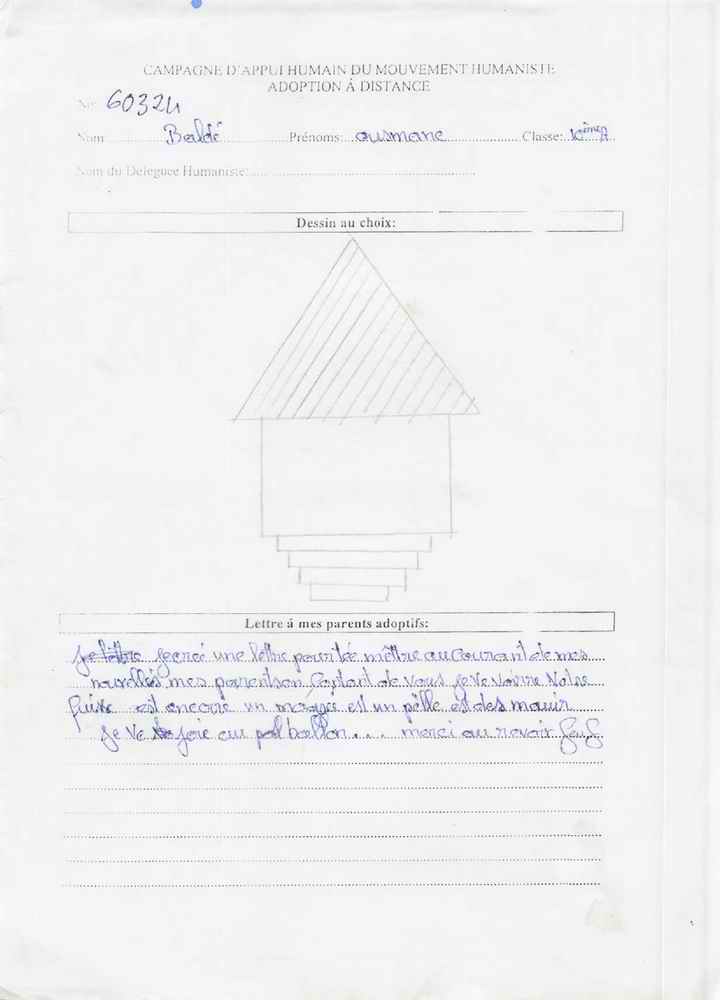 CAMPAGNE D'APPUI HUMAIN DU MOUVEMENT HUMANISTE
ADOPTION Á DISTANCE
Nr. 60324
Nom Baldé Prénoms: ousmane Classe: 10èmeA
Nom du Deleguee Humaniste:
Dessin au choix:
Lettre á mes parents adoptifs:
je lettre jecreé une lettre pour té mêttre au Courant de mes
nouvelles mes parent son Contant de vous je ve voivre Notre
est encorie un est un pêlle est des
je ve joie au ballon.... merci au revoir